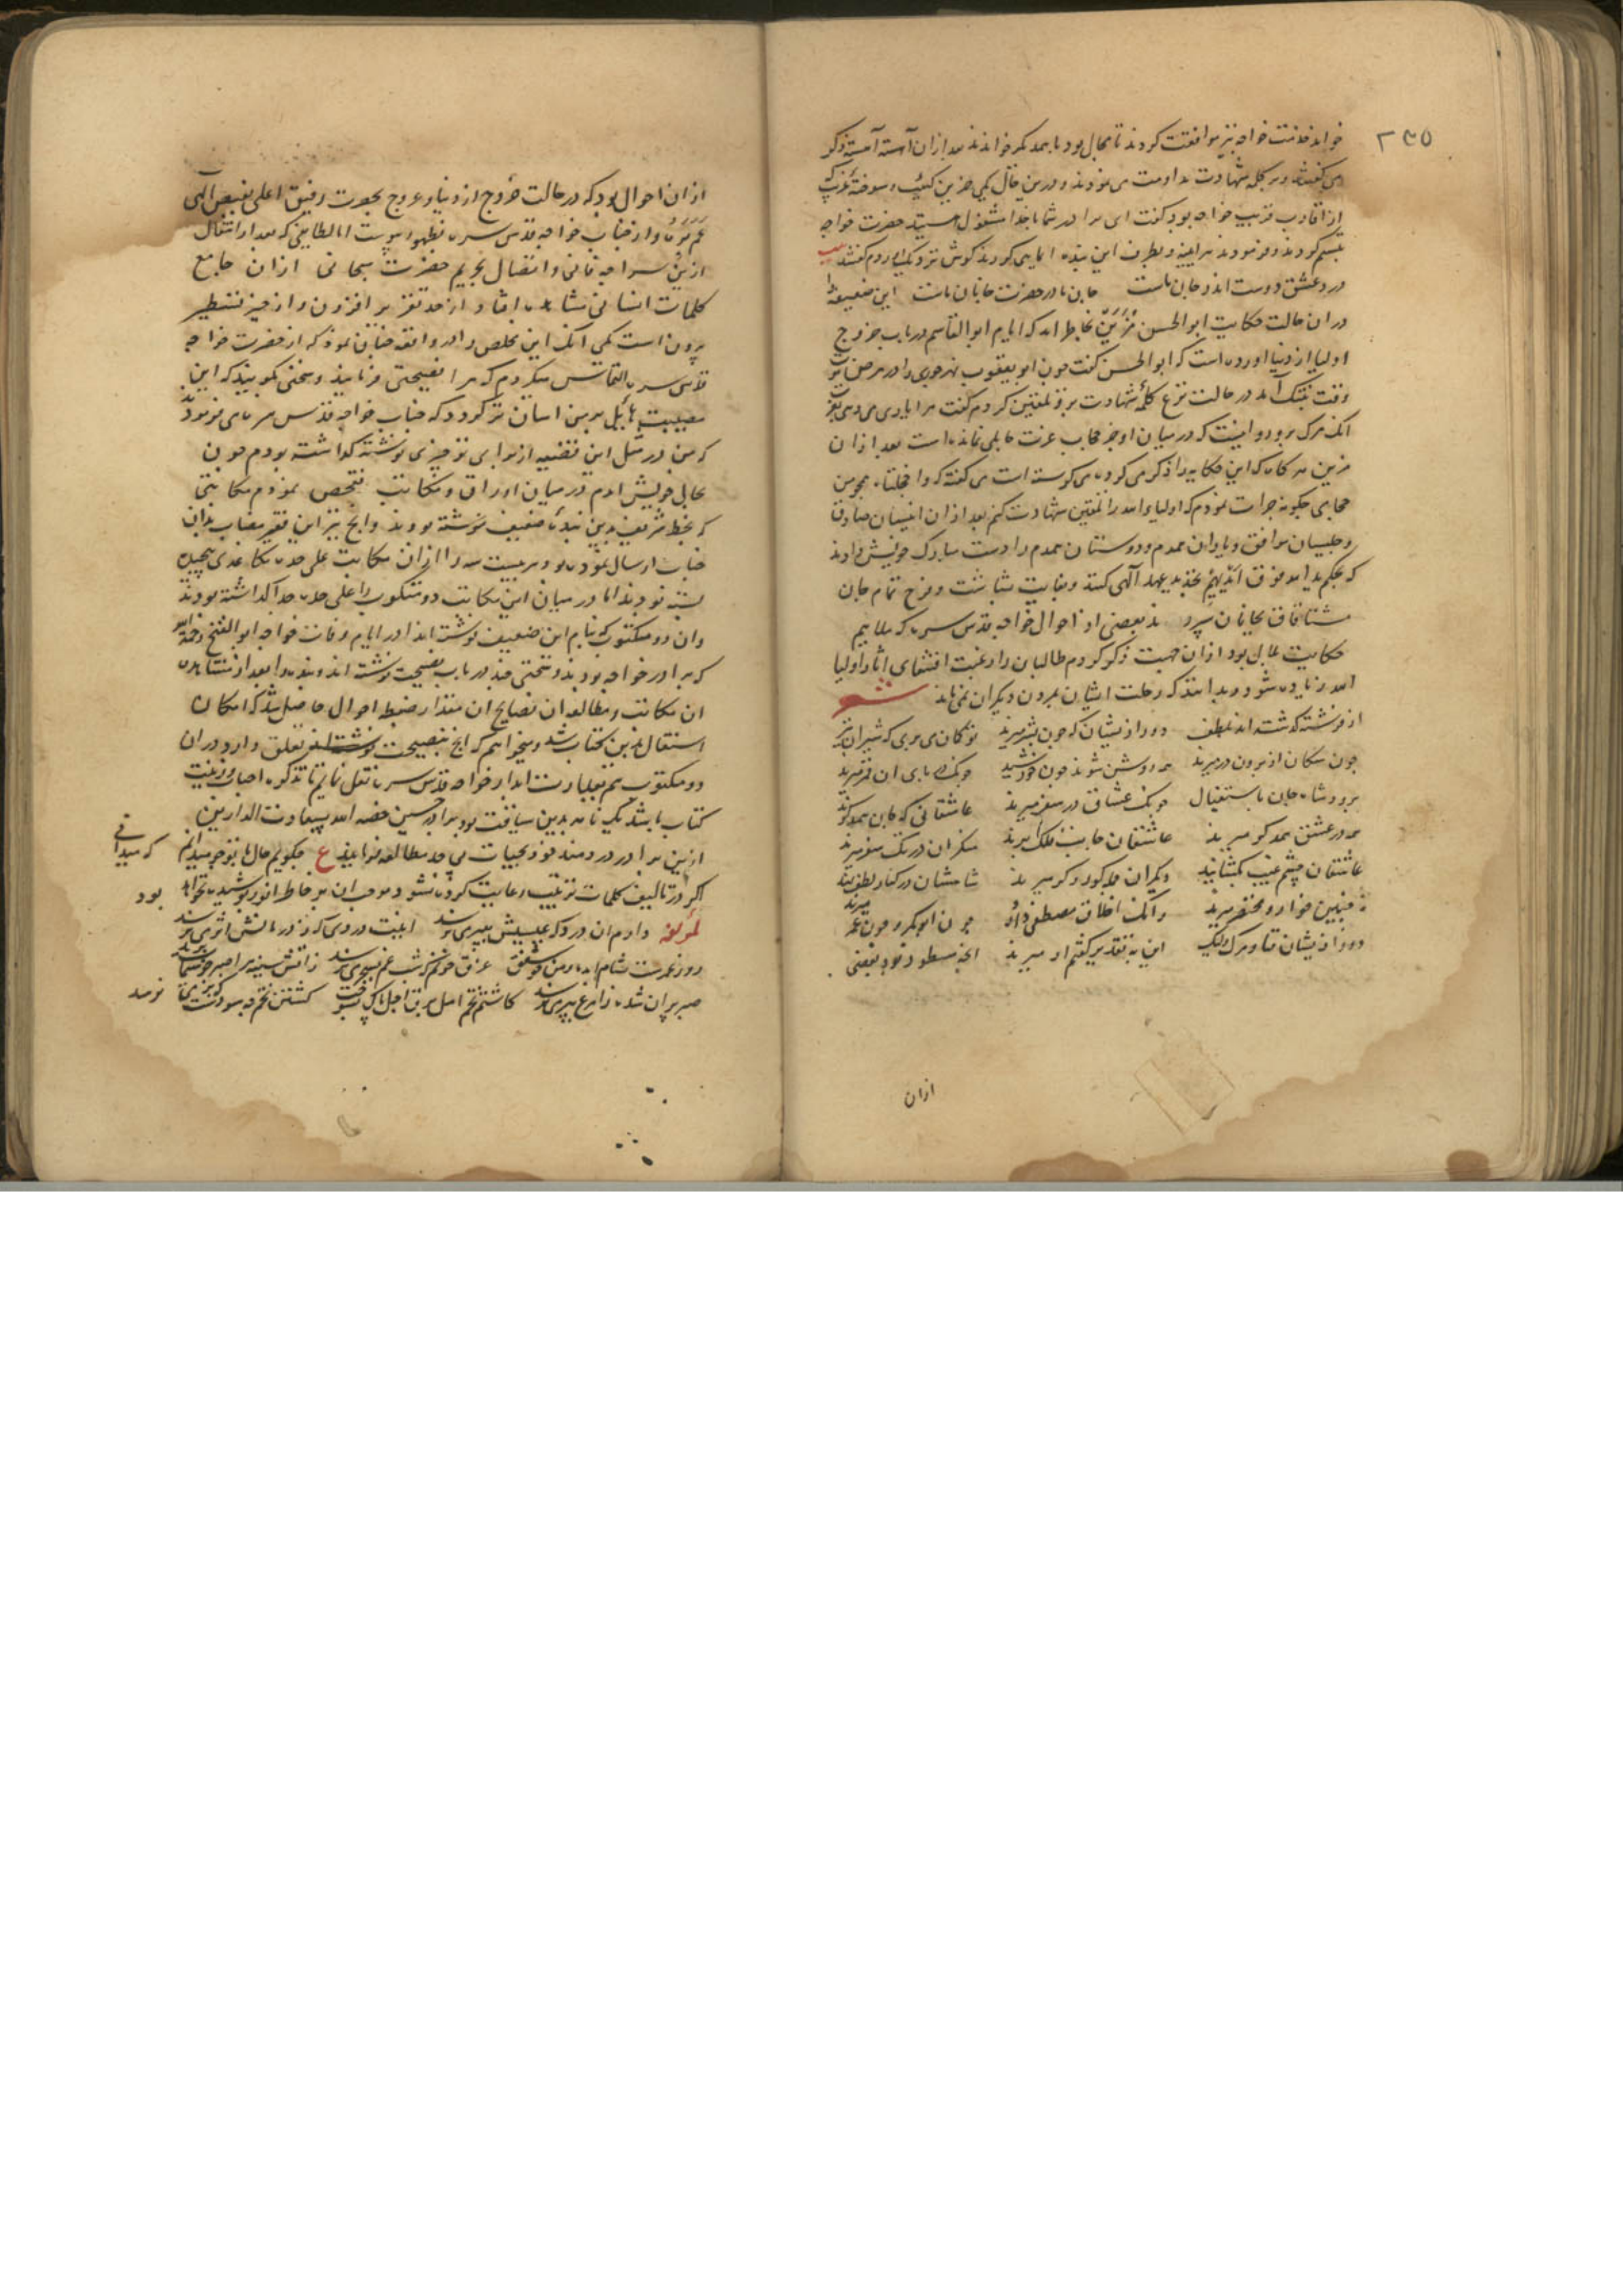 ۲۳۵
خواند خدمت خواجه نیز موافقت کردند تا مجال بود با همدیگر خواندند بعد ازان آهسته آهسته ذکر
می گفتند و بر کلمه شهادت مداومت می نمودند و درین حال یکی حزین کئیب و سوخته غریب که
از اقارب قریب خواجه بود گفت ای برادر شما با خدا مشغول هستید حضرت خواجه
تبسم کردند و فرمودند و بطرف این بنده ایمایی کردند گوش نزدیک بردم گفتند بیت
در عشق دوست اند و جان ماست جان ما در حضرت جانان ماست این ضعیف را
دران حالت حکایت ابو الحسن مزین بخاطر امد که امام ابو القاسم در باب خروج
اولیا از دنیا اورده است که ابو الحسن گفت چون ابو یعقوب نهرجوری را در مرض موت
وقت تنگ آمد در حالت نزع کلمه شهادت برو تلقین کردم گفت مرا یاد می دهی بعز
انک مرگ برو روا نیست که در میان او جز حجاب عزت حایلی نمانده است بعد ازان
مزین هر گاه که این حکایه را ذکر می کرده می گریسته است می گفته که وا خجلتاه همچو من
حجامی چگونه جرات نمودم که اولیاء الله را تلقین شهادت کنم بعد ازان انیسان صادق
و جلیسان موافق و یاران همدم و دوستان همدم را دست مبارک خویش دادند
که بحکم ید الله فوق ایدیهم تجدید عهد آلهی کنند و بغایت بشاشت و فرح تمام جان
مشتاقان بجانان سپردند بعضی از احوال خواجه قدس سره که ملایم
حکایت بود ازان جهت ذکر کردم طالبان را رغبت اقتفای اثار اولیا
الله زیاده شود و بدانند که رحلت ایشان بمردن دیگران نمی ماند شعر
از فرشته گذشته اند بلطف دور ازیشان که چون بشر میرند تو گمان می بری که شیران نیز
چون سگان از برون در میرند همه روشن شوند چون خورشید چونک در پای ان قمر میرند
برود شاه جان باستقبال چونک عشاق در سفر میرند عاشقانی که جان یکدیگرند
همه در عشق همدگر میرند عاشقان جانب فلک پرند منکران در تک سقر میرند
عاشقان چشم غیب بگشایند دیگران جمله کور و کر میرند شاهشان در کنار لطف نهد
نه چنین خوار و مختصر میرند وانک اخلاق مصطفی دارد چون ابوبکر و چون عمر میرند
دور ازیشان فنا و مرگ ولیک این به تقدیر گفتم ار میرند انچه مسطور نمود بعضی
ازان
ازان احوال بود که در حالت خروج از دنیا و عروج بصوت رفیق اعلی بفیض آلهی
عم بره و از جناب خواجه قدس سره بظهور پیوست اما لطایفی که بعد از انتقال
ازین سراچه فانی و اتصال بحریم حضرت سبحانی ازان جامع
کلمات انسانی مشاهده افتاد از حد تقریر افزون و از حیز تسطیر
برون است یکی انک این مخلص را در واقعه چنان نمود که از حضرت خواجه
قدس سره التماس میکردم که مرا نصیحتی فرمایید و سخنی بگویید که این
مصیبت هایل بر من اسان تر گردد که جناب خواجه قدس سره می فرمودند
که من در مثل این قضیه از برای تو چیزی نوشته گذاشته بودم چون
بحال خویش امدم در میان اوراق و مکاتب تفحص نمودم مکاتیبی
که بخط شریف بدین بنده ضعیف نوشته بودند وانچ نیز این فقیر بجناب بدان
جناب ارسال نموده بود هر بیست سه را ازان مکاتبت علی حده بکاغذی پیچیده
بسته بودند اما در میان این مکاتب دو مکتوب را علی حده جدا گذاشته بودند
وان دو مکتوب که بنام این ضعیف نوشته اند در ایام وفات خواجه ابو الفتح رحمه الله
که برادر خواجه بودند و سخنی چند در باب نصیحت نوشته اند و بنده را بعد از مشاهده
ان مکاتب و مطالعه ان نصایح ان مقدار ضبط احوال حاصل شد که امکان
اشتغال بدین کتاب شد و میخواهم که انچ بنصیحت تعلق دارد دران
دو مکتوب هم بعبارت ابدار خواجه قدس سره نقل نمایم تا تذکره احباب و زینت
کتاب باشد یک نامه بدین سیاقت بود برادر حسین خصه الله بسعادت الدارین
ازین برادر دردمند خود تحیات بی حد مطالعه فرمایند ع چگویم حال با تو چو میدانم که میدانی
اگر در تالیف کلمات ترتیب رعایت کرده نشود موجب ان بر خاطر انور پوشیده نخواهد بود
لمؤلفه دارم ان درد که عیسیش بسر می نرسد اینت دردی که ز درمانش اثر می نرسد
روز عمرست شام امده و من ز شفق غرق خونم که شب غم بسحر می نرسد ز اتش سینه مرا صبر چو سیماب پرید
صبر پران شده را مرغ بپر می نرسد کاشتم تخم امل برق اجل پاک بسوخت کشتن تخم چه سودست که بر می نرسد